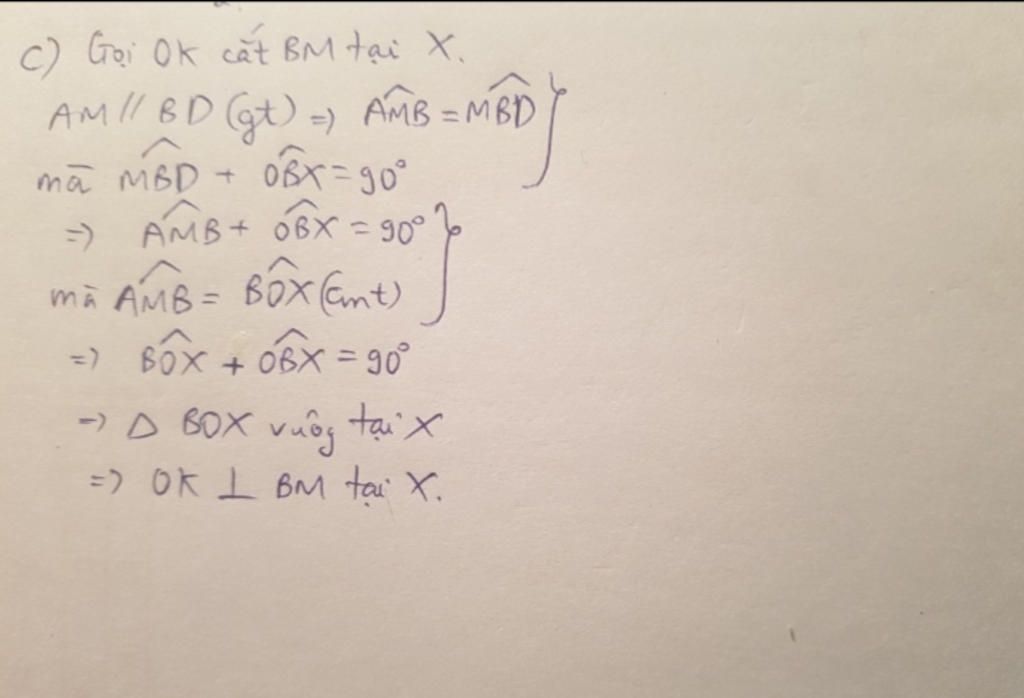 c) Gọi OK cắt BM tại X.
AM // BD (gt) => \widehat{AMB} = \widehat{MBD}
mà \widehat{MBD} + \widehat{OBX} = 90°
=> \widehat{AMB} + \widehat{OBX} = 90°
mà \widehat{AMB} = \widehat{BOX} (cmt)
=> \widehat{BOX} + \widehat{OBX} = 90°
=> Δ BOX vuông tại X
=> OK ⊥ BM tại X.